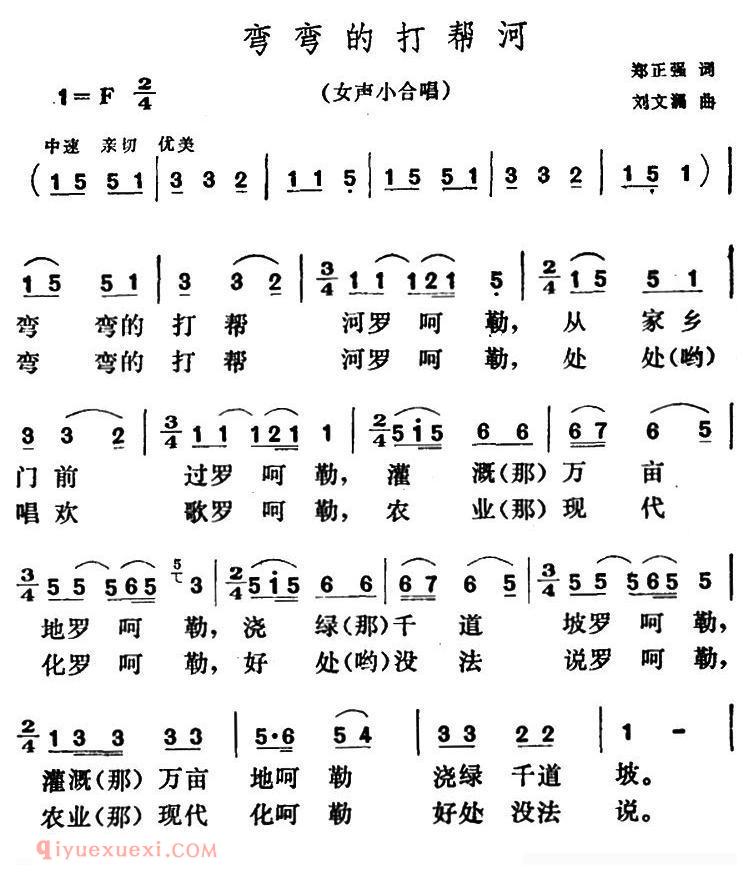 弯弯的打帮河
郑正强 词
1=F 2/4 (女声小合唱) 刘文 曲
中速 亲切 优美
(1 5 5 1 | 3 3 3 2 | 1 1 1 5 | 1 5 5 1 | 3 3 3 2 | 1 5 1) |
1 5 5 1 | 3 3 2 | 3/4 1 1 1 2 1 5 | 2/4 1 5 5 1 |
弯 弯的 打 帮 河罗 呵 勒, 从 家 乡
弯 弯的 打 帮 河罗 呵 勒, 处 处(哟)
3 3 2 | 3/4 1 1 1 2 1 1 | 2/4 5 i 5 6 6 | 6 7 6 5 |
门 前 过罗 呵 勒, 灌 溉(那)万 亩
唱 欢 歌罗 呵 勒, 农 业(那)现 代
3/4 5 5 5 6 5 5 3 | 2/4 5 i 5 6 6 | 6 7 6 5 | 3/4 5 5 5 6 5 5 |
地罗 呵 勒, 浇 绿(那)千 道 坡罗 呵 勒,
化罗 呵 勒, 好 处(哟)没 法 说罗 呵 勒,
2/4 1 3 3 3 3 | 5·6 5 4 | 3 3 2 2 | 1 - |
灌溉(那)万亩 地呵 勒 浇绿 千道 坡。
农业(那)现代 化呵 勒 好处 没法 说。
qiyuexuexi.com